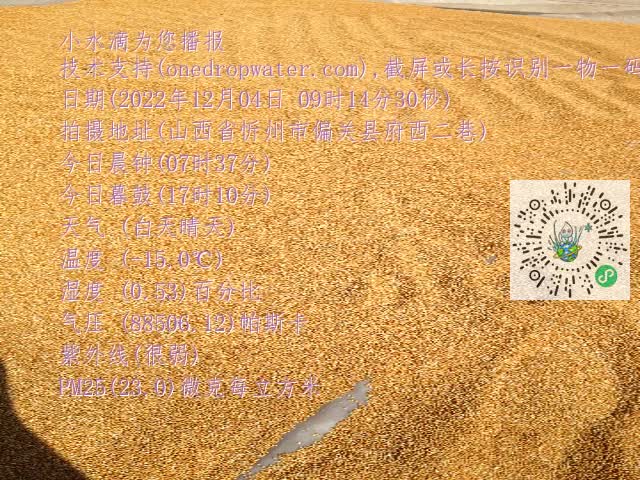 小水滴为您播报
技术支持(onedropwater.com),截屏或长按识别一物一码
日期(2022年12月04日 09时14分30秒)
拍摄地址(山西省忻州市偏关县府西二巷)
今日晨钟(07时37分)
今日暮鼓(17时10分)
天气 (白天晴天)
温度 (-15.0℃)
湿度 (0.53)百分比
气压 (88506.12)帕斯卡
紫外线(很弱)
PM25(23.0)微克每立方米